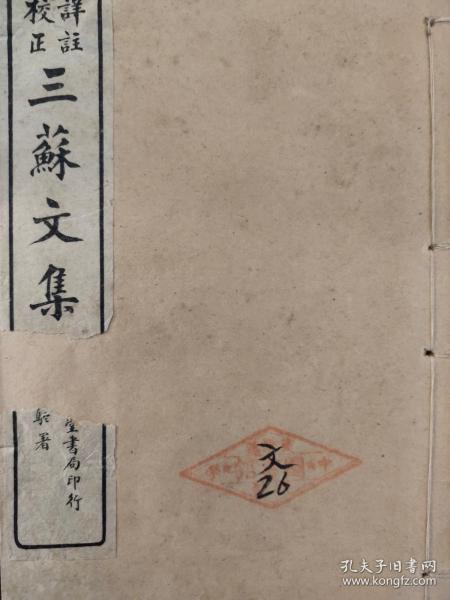 詳註
校正
三蘇文集
堂書局印行
署
文
26
孔夫子旧书网
www.kongfz.com